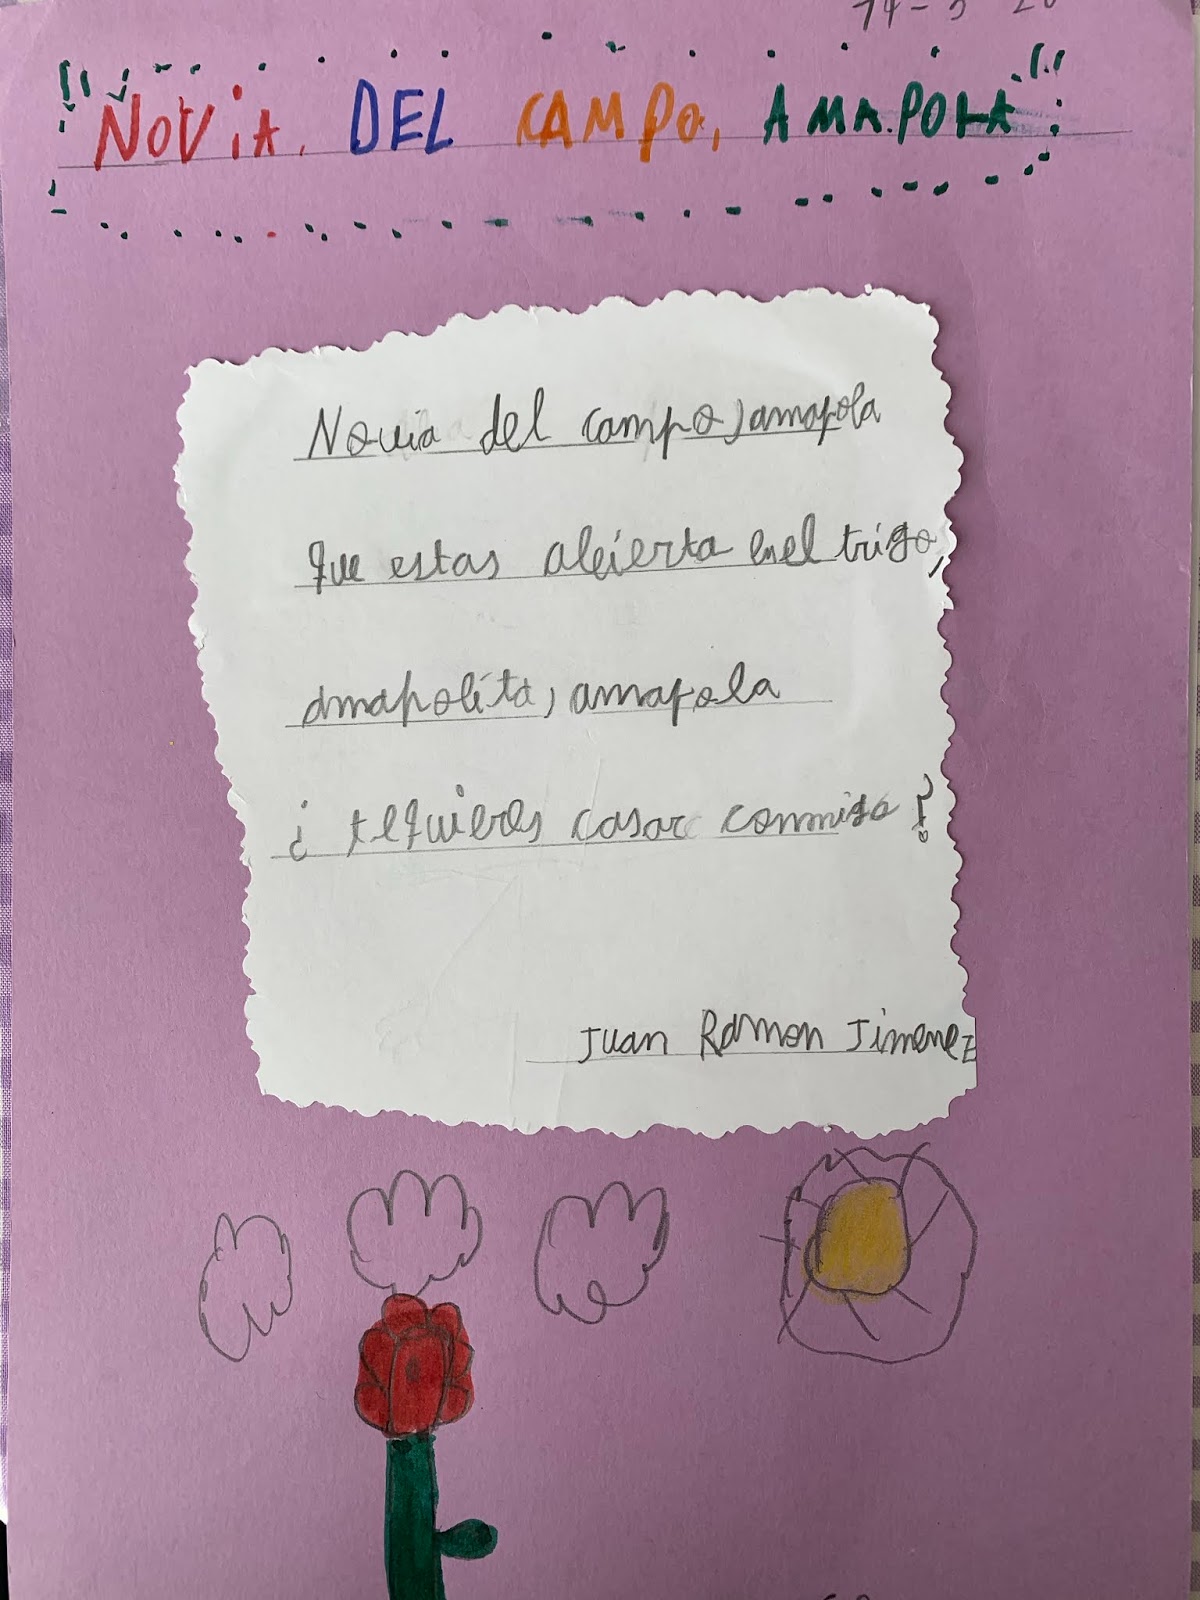 14-5 20
"NOViA. DEL CAMPO, AMAPOLA"
Novia del campo, amapola
Que estas abierta en el trigo,
amapolita, amapola
¿te quieres casar conmigo?
Juan Ramon Jimenez